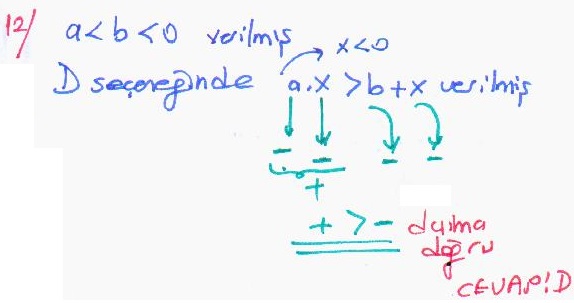 12/ a<b<0 verilmiş
x<0
D seçeneğinde a.x >b+x verilmiş
- - - -
+
+ > - daima
doğru
CEVAP:D